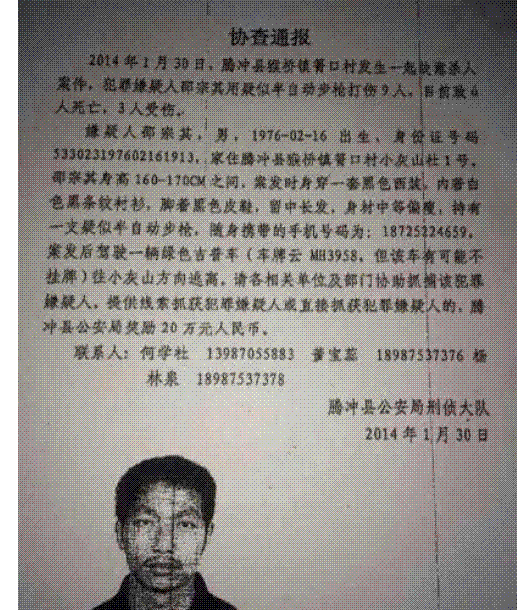 协查通报
2014年1月30日，腾冲县猴桥镇箐口村发生一起故意杀人
案件，犯罪嫌疑人邵宗其用疑似半自动步枪打伤9人，目前致6
人死亡，3人受伤。
嫌疑人邵宗其，男，1976-02-16 出生，身份证号码
533023197602161913，家住腾冲县猴桥镇箐口村小灰山社1号。
邵宗其身高160-170CM之间，案发时身穿一套黑色西装，内着白
色黑条纹衬衫，脚着黑色皮鞋，留中长发，身材中等偏瘦，持有
一支疑似半自动步枪，随身携带的手机号码为：18725224659。
案发后驾驶一辆绿色吉普车（车牌云MH3958，但该车有可能不
挂牌）往小灰山方向逃离。请各相关单位及部门协助抓捕该犯罪
嫌疑人，提供线索抓获犯罪嫌疑人或直接抓获犯罪嫌疑人的，腾
冲县公安局奖励20万元人民币。
联系人：何学社 13987055883 宝蕊 18987537376 杨
林泉 18987537378
腾冲县公安局刑侦大队
2014年1月30日